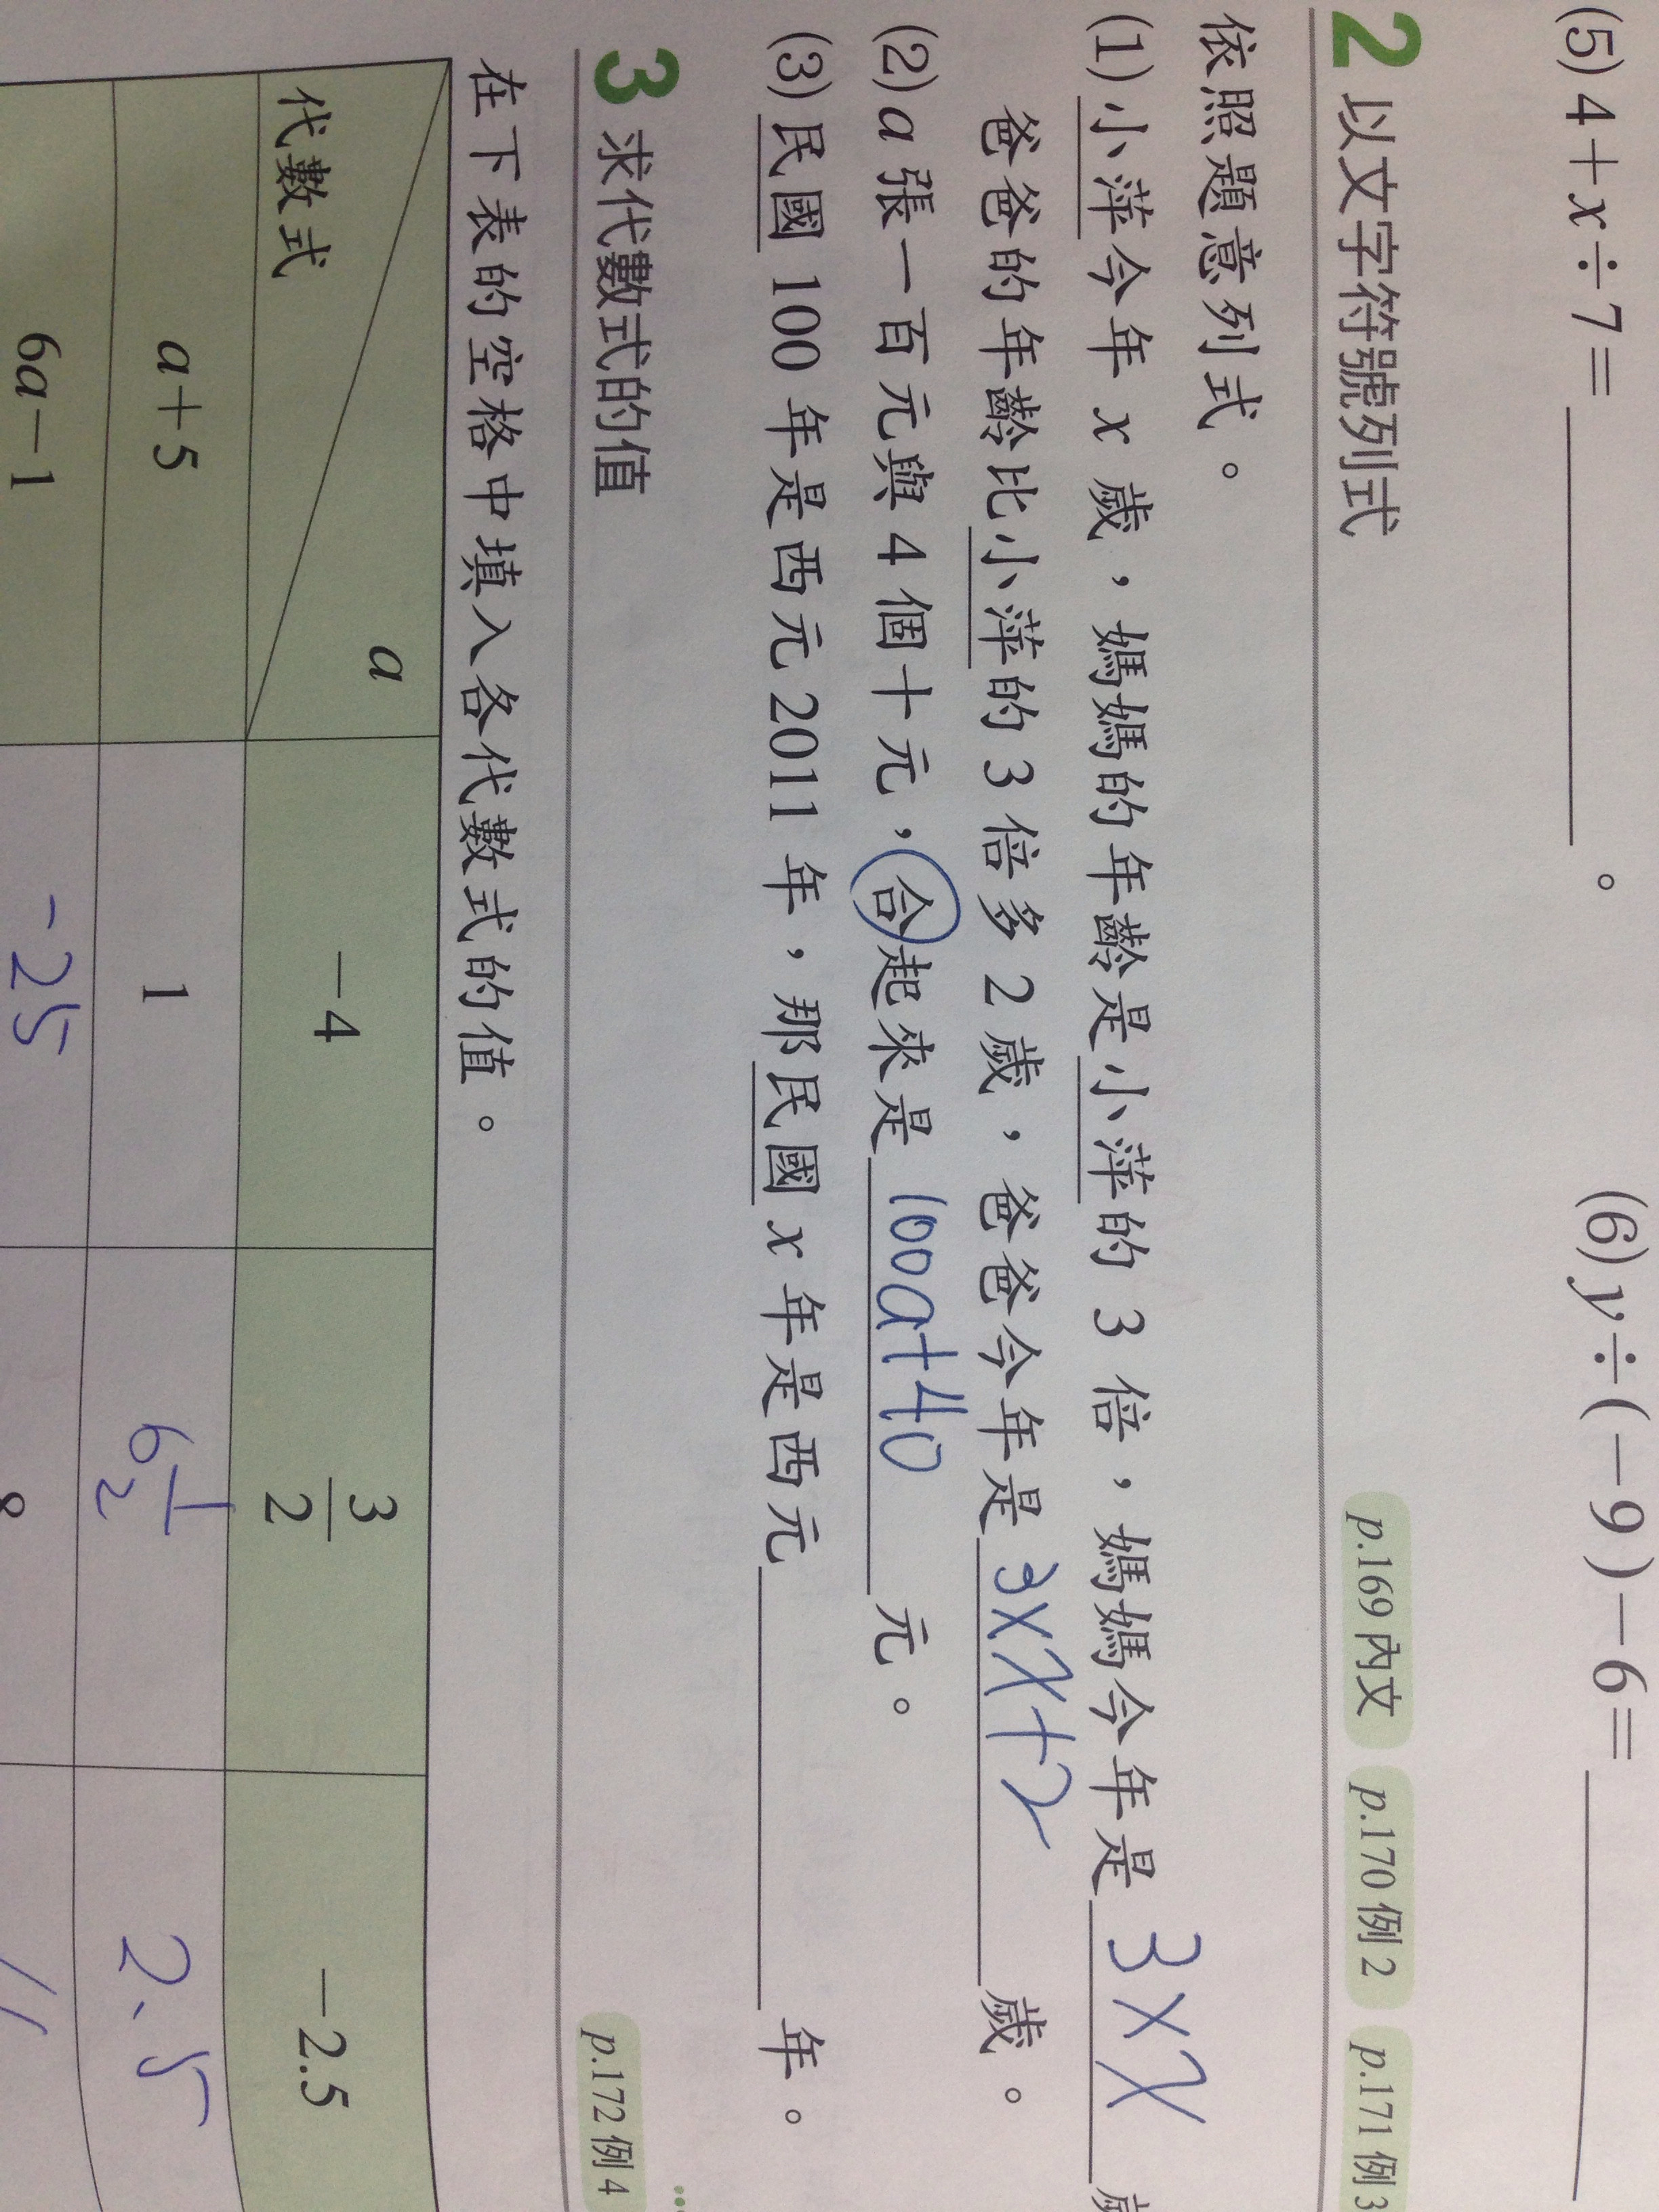 (5) 4+x÷7=＿＿＿＿＿＿。 (6) y÷(−9)−6=＿＿＿＿＿＿
2 以文字符號列式 p.169內文 p.170例2 p.171例3
依照題意列式。
(1) 小萍今年 x 歲，媽媽的年齡是小萍的 3 倍，媽媽今年是 3×x 歲
爸爸的年齡比小萍的 3 倍多 2 歲，爸爸今年是 3×x+2 歲。
(2) a 張一百元與 4 個十元，合起來是 100a+40 元。
(3) 民國 100 年是西元 2011 年，那民國 x 年是西元＿＿＿＿＿＿年。
3 求代數式的值 p.172例4
在下表的空格中填入各代數式的值。
a
代數式 −4 3/2 −2.5
a+5 1 6 1/2 2.5
6a−1 -25 8